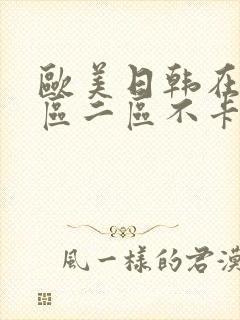 歐美日韩在
區二區不卡
風一樣的君漠